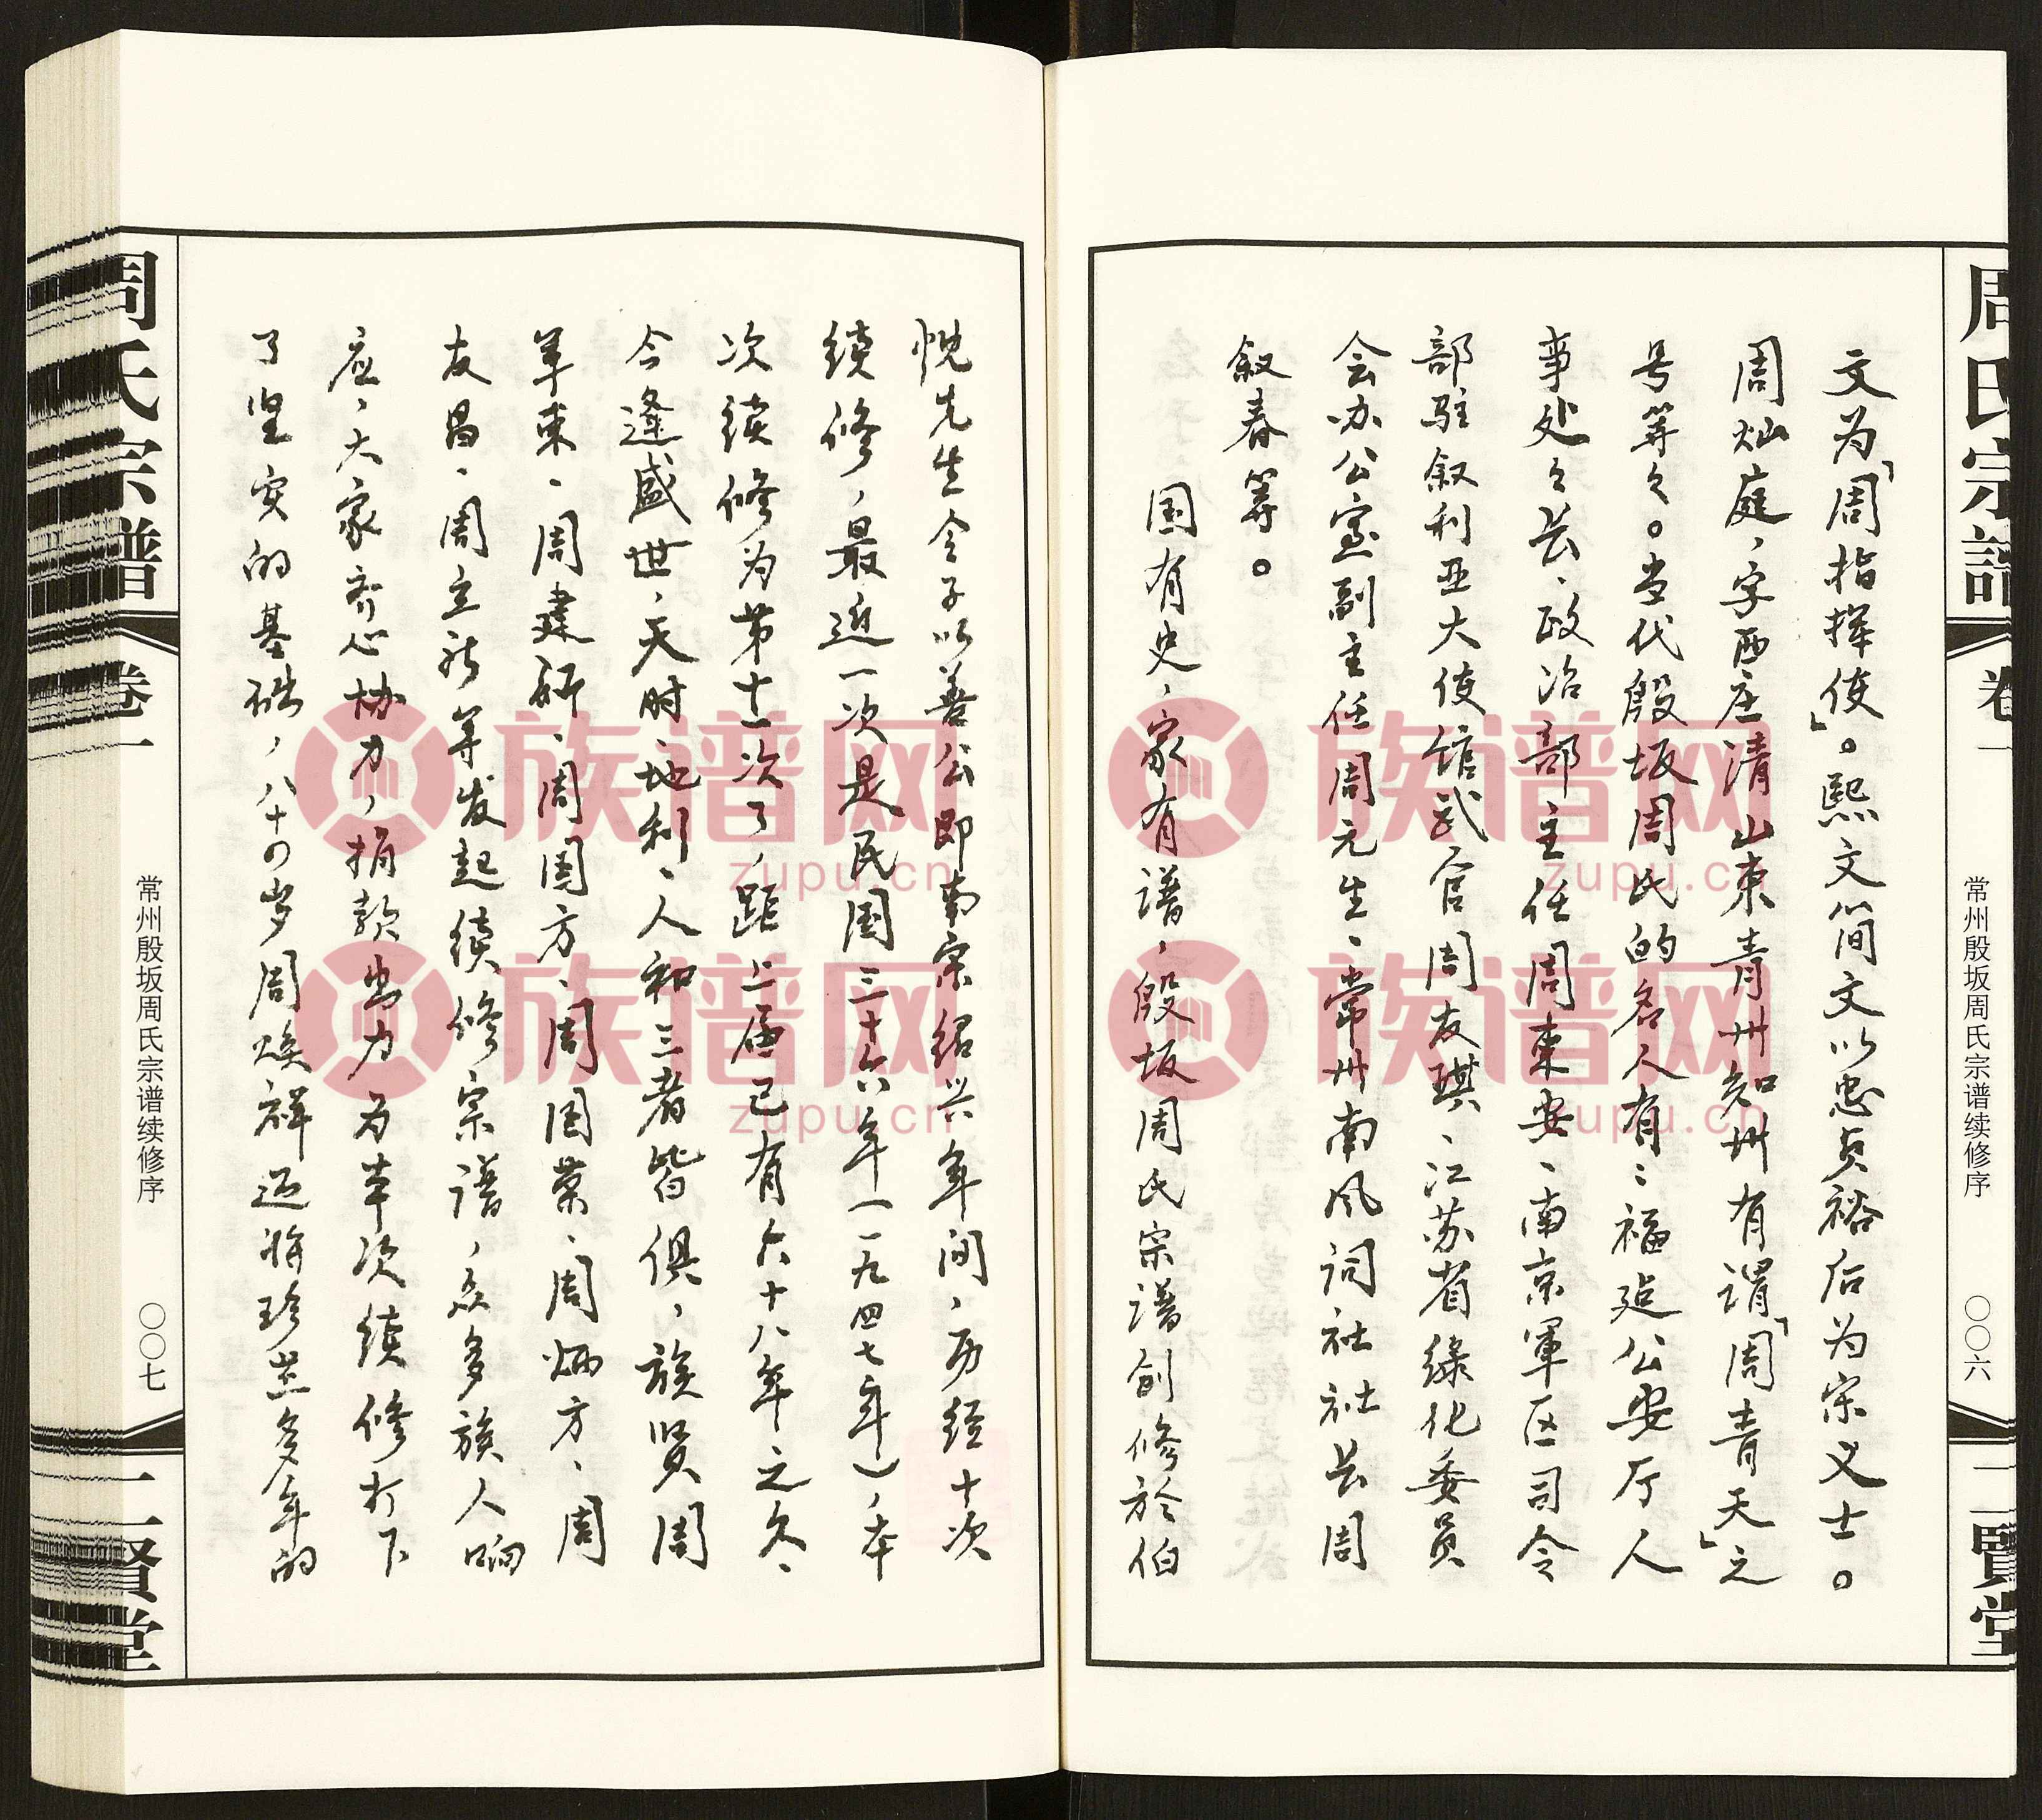 周氏宗譜
卷一
常州殷坂周氏宗谱续修序
〇〇六
二賢堂
文为「周指挥使」。熙文简文以忠贞裕后为宋义士。
周灿庭，字西庄清山东青州知州有谓「周青天」之
号等々。当代殷坂周氏的名人有：福建公安厅人
事处々长、政治部主任周东安、南京军区司令
部驻叙利亚大使馆武官周友琪、江苏省绿化委员
会办公室副主任周元生、常州南风词社社长周
叙春等。
国有史，家有谱，殷坂周氏宗谱创修於伯
忱先生令子以善公即南宋绍兴年间，历经十次
续修，最近一次是民国三十六年（一九四七年），本
次续修为第十一次了，距上届已有六十八年之久、
今逢盛世，天时、地利、人和三者皆俱，族贤周
羊东、周建新、周国方、周国叶、周炳方、周
友昌、周立新等发起续修宗谱，众多族人响
应，大家齐心协力，捐款出力为本次续修打下
了坚实的基础，八十四岁周焕祥迈将珍藏多年的
周氏宗譜
卷一
常州殷坂周氏宗谱续修序
〇〇七
二賢堂
族谱网
zupu.cn
族谱网
zupu.cn
族谱网
zupu.cn
族谱网
zupu.cn